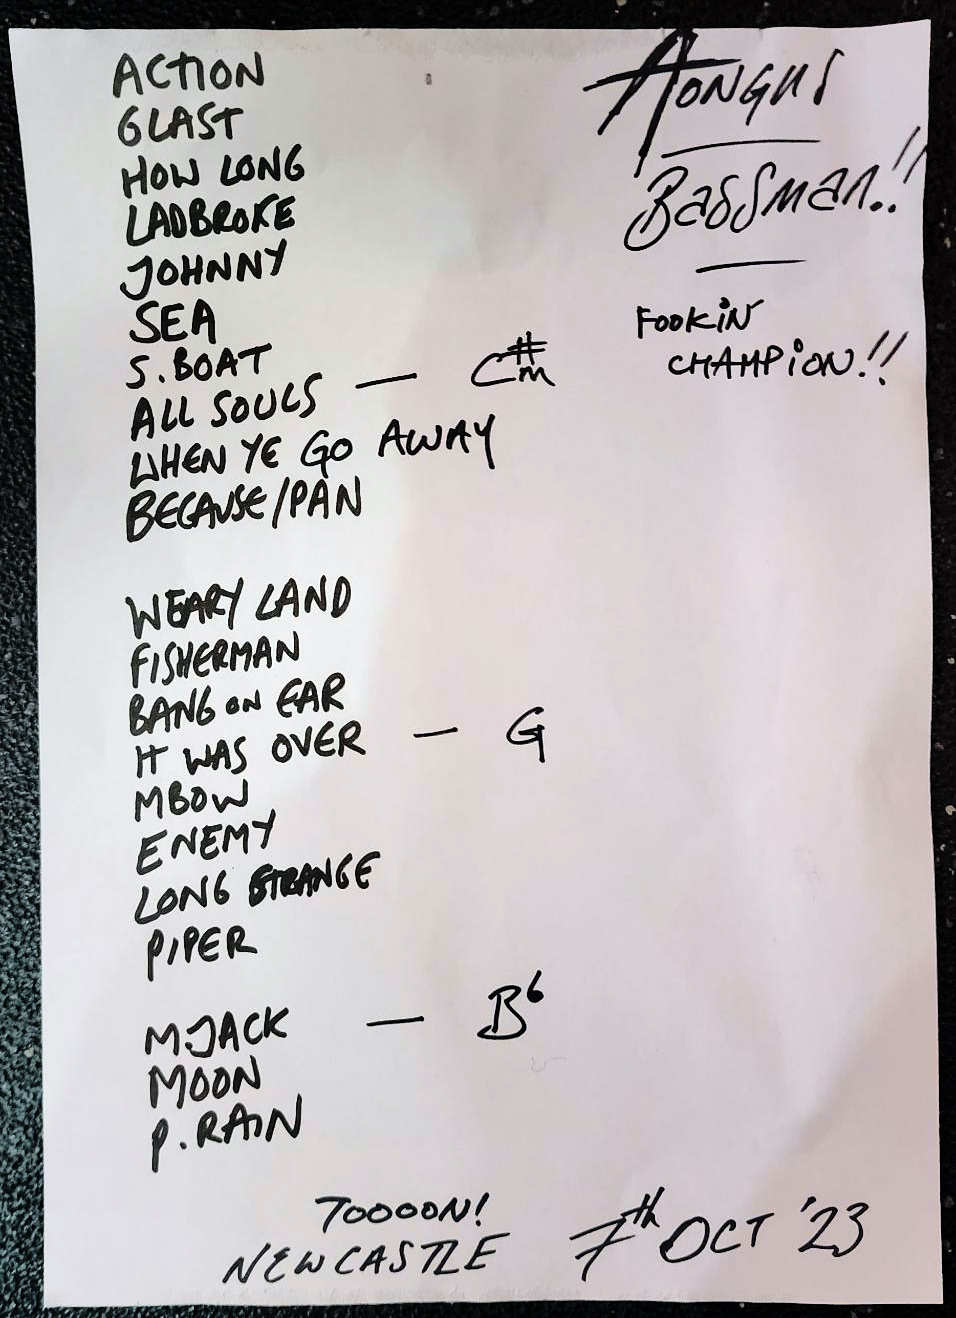 ACTION
GLAST
HOW LONG
LADBROKE
JOHNNY
SEA
S. BOAT
ALL SOULS — C#m
WHEN YE GO AWAY
BECAUSE/PAN
WEARY LAND
FISHERMAN
BANG ON EAR
IT WAS OVER — G
MBOW
ENEMY
LONG STRANGE
PIPER
MJACK — B6
MOON
P. RAIN
AONGUS
BASSMAN!!
FOOKIN
CHAMPION!!
TOOOON!
NEWCASTLE 7th OCT '23